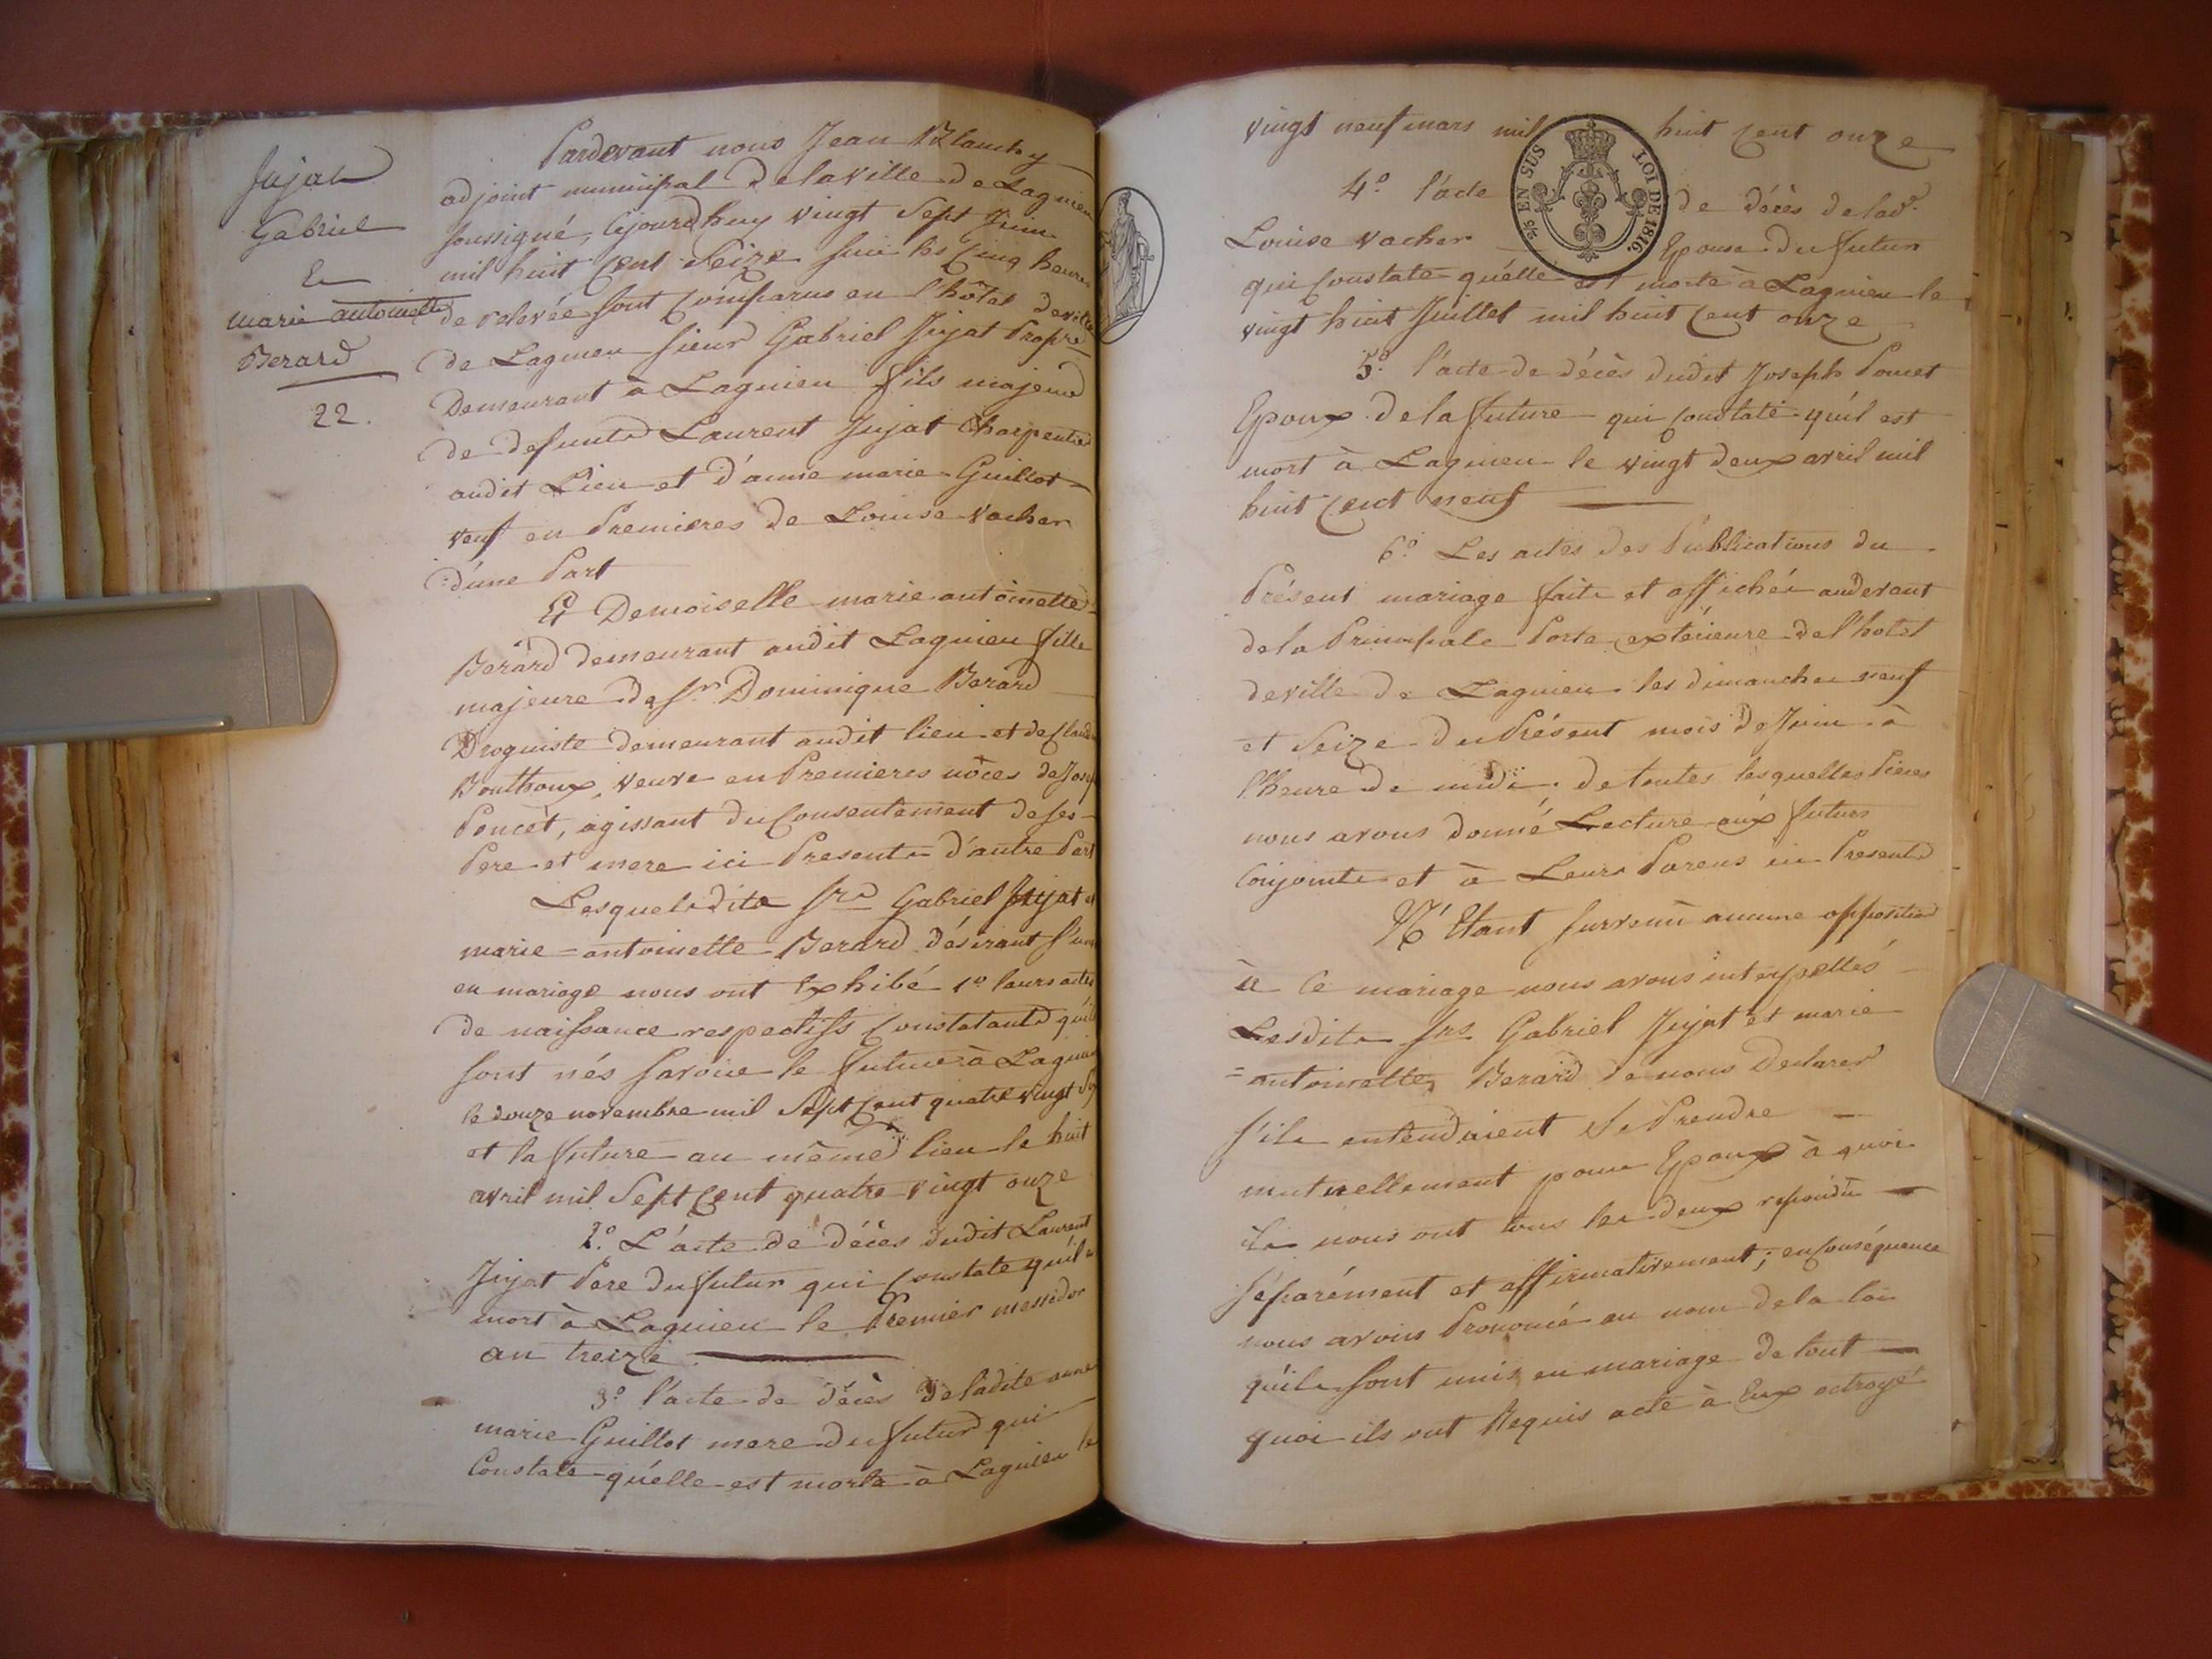 Jujat
Gabriel
Et
marie antoinette
Berard
22.
Pardevant nous Jean Blanchy
adjoint municipal de la ville de Lagnieu
soussigné, Cejourdhuy vingt Sept Juin
mil huit Cent Seize sur les Cinq heures
de relevée sont Comparus en l'hôtel deville
de Lagnieu sieur Gabriel Jujat Propre
Demeurant à Lagnieu fils majeur
de defunts Laurent Jujat Charpentier
audit Lieu et d'anne marie Guillot
veuf en Premieres de Louise Vacher
d'une Part
Et Demoiselle marie antoinette
Berard demeurant audit Lagnieu fille
majeure de Sr. Dominique Berard
Droguiste demeurant audit lieu et de Claud
Bouthoux, veuve en Premieres nôces de Jose
Poncet, agissant du Consentement de ses
Pere et mere ici Presents d'autre Part
Lesquels dits Srs Gabriel Jujat et
marie = antoinette Berard désirant s'un
en mariage nous ont Exhibé 1o leurs actes
de naissance respectifs Constatants qu'ils
sont nés savoir le futur à Lagnieu
le douze novembre mil Sept Cent quatre vingt
et la future au même lieu le huit
avril mil Sept Cent quatre vingt onze
2.o L'acte de décès dudit Laurent
Jujat Pere du futur qui Constate qu'il
mort à Lagnieu le Premier messidor
an treize
3.o l'acte de décès de ladite anne
marie Guillot mere du futur qui
Constate qu'elle est morte à Lagnieu le
vingt neuf mars mil huit Cent onze
2/5 EN SUS
LOI DE 1816.
4.o l'acte de décès de lad.
Louise Vacher Epouse du futur
qui Constate qu'elle est morte à Lagnieu le
vingt huit Juillet mil huit Cent onze
5.o l'acte de décès dudit Joseph Poncet
Epoux de la future qui Constate qu'il est
mort à Lagnieu le vingt deux avril mil
huit Cent neuf
6.o Les actes des Publications du
Présent mariage faite et affichée audevant
de la Principale Porte extérieure de l'hotel
deville de Lagnieu les dimanches neuf
et Seize du Présent mois de Juin à
l'heure de midi. de toutes lesquelles Pieces
nous avons donné Lecture aux futurs
Conjoints et à Leurs Parens ici Presents
N'Etant survenù aucune opposition
à Ce mariage nous avons interpellés
Lesdits Srs Gabriel Jujat et marie
= antoinette Berard de nous Declarer
s'ils entendaient Se Prendre
mutuellement pour Epoux à quoi
ils nous ont tous les deux repondu
séparément et affirmativement; en Conséquence
nous avons Prononcé au nom de la loi
qu'ils sont unis en mariage de tout
quoi ils ont Requis acte à Eux octroyé